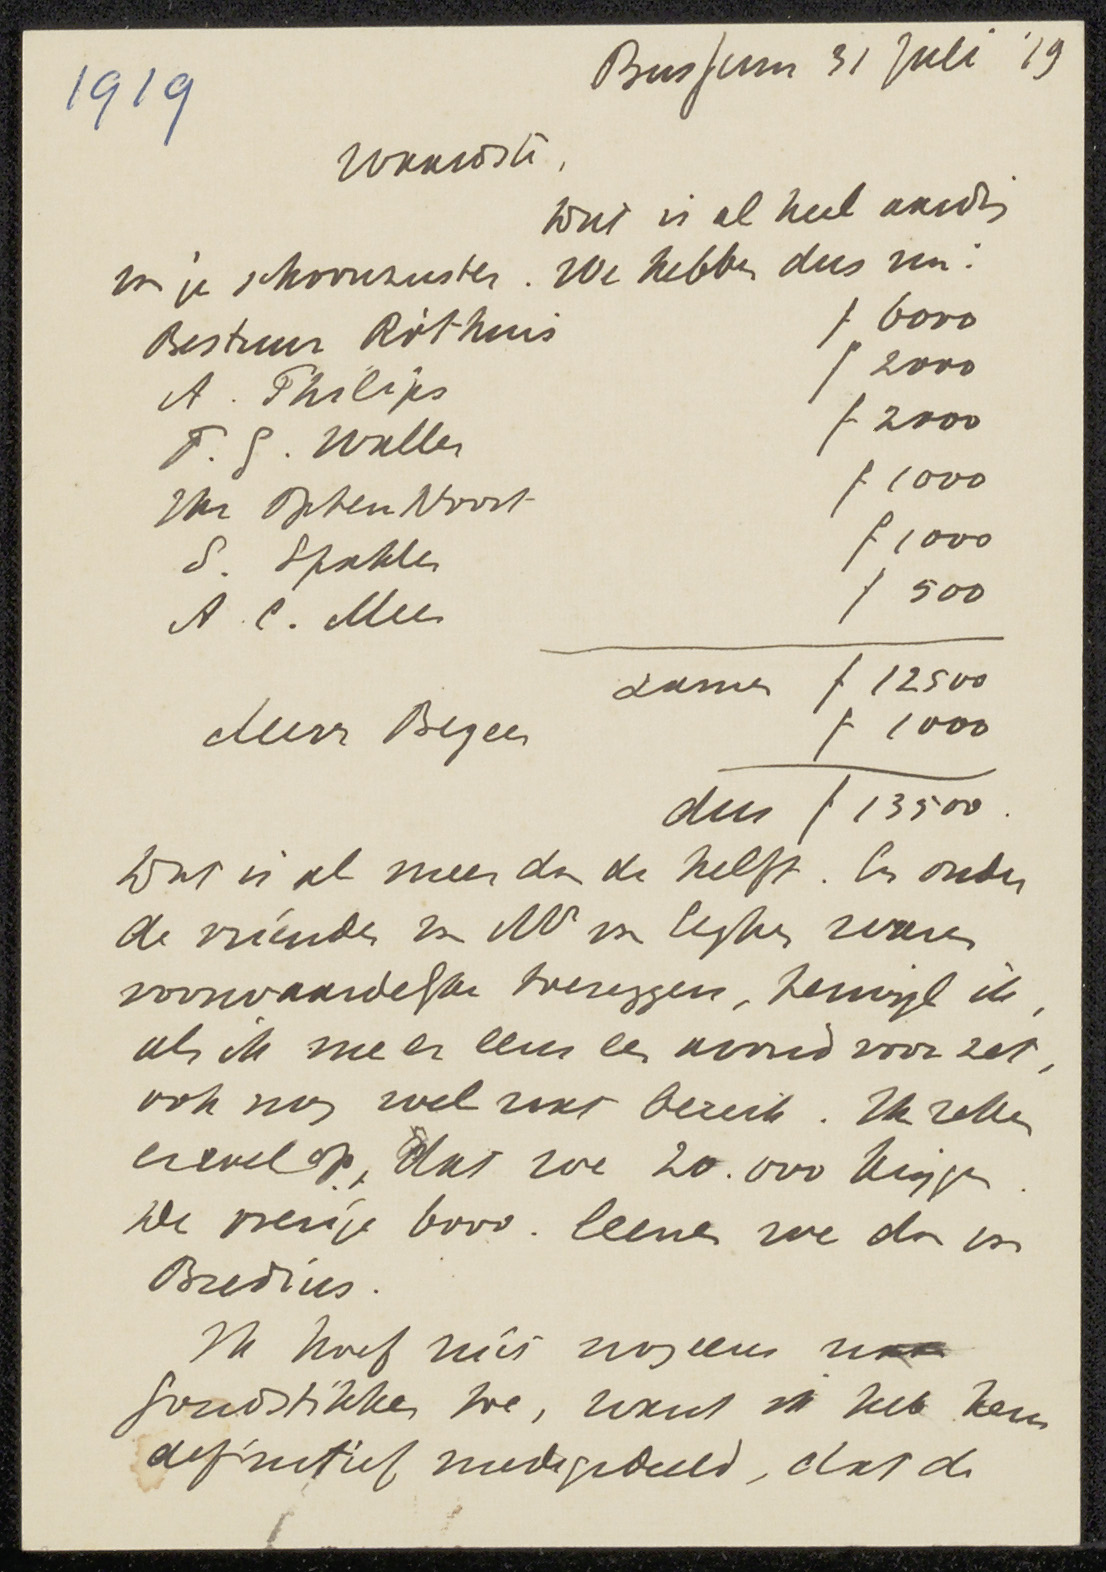 1919
Bussum 31 Juli '19
Waardste,
Dat is al heel aardig
van je schoonzuster. We hebben dus nu:
Bestuur Rothuis f 6000
A. Philips f 2000
F. G. Waller f 2000
Jhr Op ten Noort f 1000
S. Spakler f 1000
A. C. Mees f 500
zamen f 12500
Mevr Begeer f 1000
dus f 13500.
Dat is al meer dan de helft. En onder
de vrienden van Mr van Eeghen waren
voorwaardelijke toezeggers, terwijl ik,
als ik me er eens een avond voor zet,
ook nog wel wat bereik. Ik reken
er wel op, dat we 20.000 krijgen.
De overige 6000. leenen we dan van
Bredius.
Ik hoef niet nog eens naar
Goudstikker toe, want ik heb hem
definitief medegedeeld, dat de